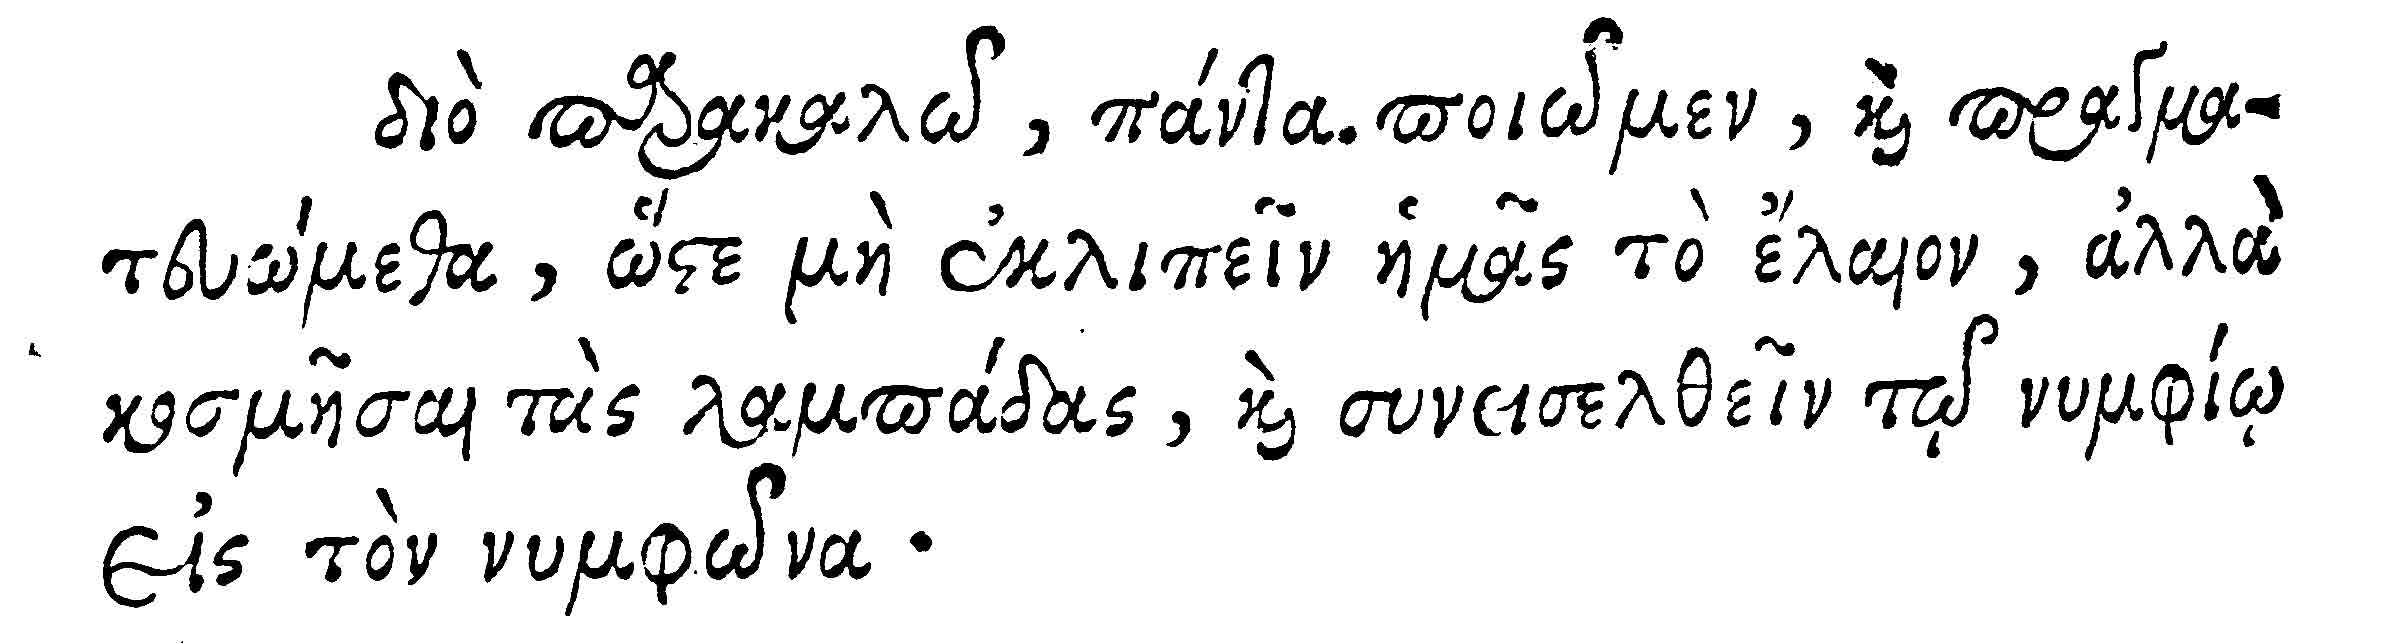 διὸ παρακαλῶ, πάντα. ποιῶμεν, καὶ πραγμα-
τευώμεθα, ὥστε μὴ ἐκλιπεῖν ἡμᾶς τὸ ἔλαιον, ἀλλὰ
κοσμῆσαι τὰς λαμπάδας, καὶ συνεισελθεῖν τῷ νυμφίῳ
εἰς τὸν νυμφῶνα.